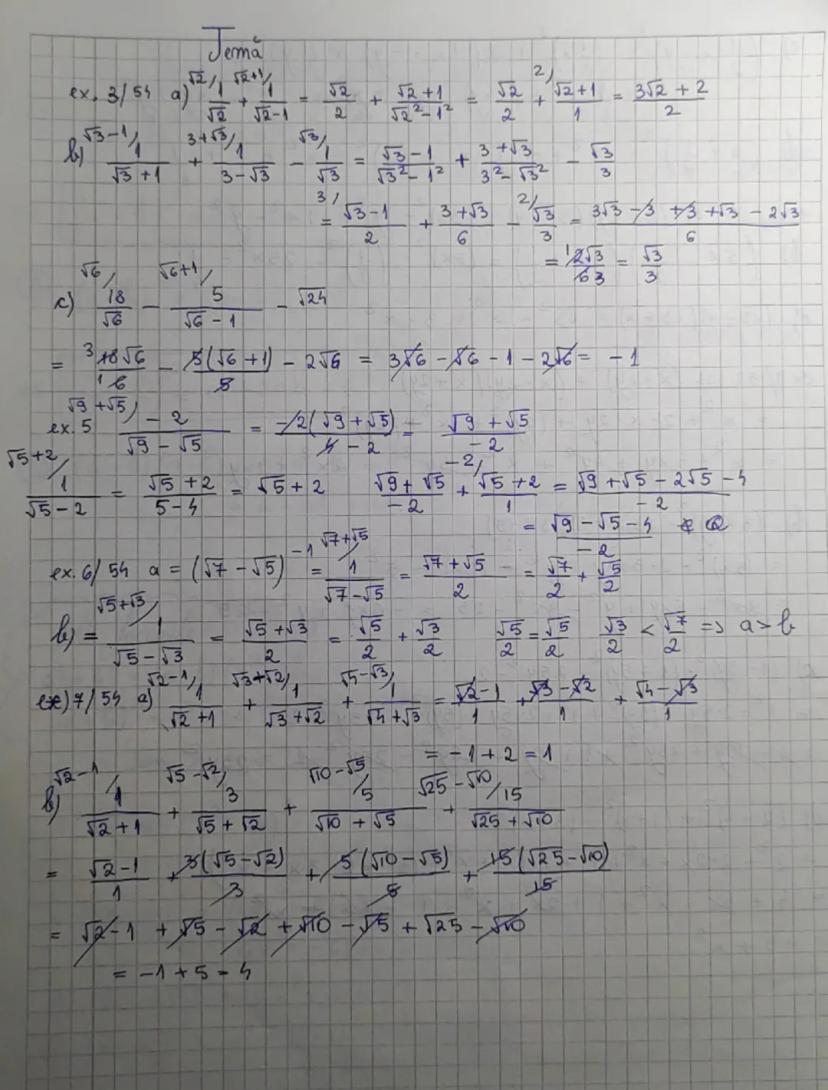 Temă
ex. 3/54 a) √2/ 1/√2 + √2+1/ 1/(√2-1) = √2/2 + (√2+1)/(√2²-1²) = √2/2 + 2/ (√2+1)/1 = (3√2+2)/2
b) √3-1/ 1/(√3+1) + 3+√3/ 1/(3-√3) - √3/ 1/√3 = (√3-1)/(√3²-1²) + (3+√3)/(3²-√3²) - √3/3
= 3/ (√3-1)/2 + (3+√3)/6 - 2/ √3/3 = (3√3-3+3+√3-2√3)/6
= 2√3/6 3 = √3/3
c) √6/ 18/√6 - √6+1/ 5/(√6-1) - √24
= 3 18√6/6 1 - 5(√6+1)/5 - 2√6 = 3√6 - √6 - 1 - 2√6 = -1
ex. 5 √9+√5/ -2/(√9-√5) = -2(√9+√5)/(4-2) = (√9+√5)/-2
√5+2/ 1/(√5-2) = (√5+2)/(5-4) = √5+2 (√9+√5)/-2 + -2/ (√5+2)/1 = (√9+√5-2√5-4)/-2
= (√9-√5-4)/-2 ∉ Q
ex. 6/54 a = (√7-√5)⁻¹ = √7+√5/ 1/(√7-√5) = (√7+√5)/2 = √7/2 + √5/2
b) = √5+√3/ 1/(√5-√3) = (√5+√3)/2 = √5/2 + √3/2 √5/2 = √5/2 √3/2 < √7/2 => a > b
ex) 7/54 a) √2-1/ 1/(√2+1) + √3+√2/ 1/(√3+√2) + √4-√3/ 1/(√4+√3) = (√2-1)/1 + (√3-√2)/1 + (√4-√3)/1
= -1+2 = 1
b) √2-1/ 1/(√2+1) + √5-√2/ 3/(√5+√2) + √10-√5/ 5/(√10+√5) + √25-√10/ 15/(√25+√10)
= (√2-1)/1 + 3(√5-√2)/3 + 5(√10-√5)/5 + 15(√25-√10)/15
= √2-1 + √5 - √2 + √10 - √5 + √25 - √10
= -1+5-4